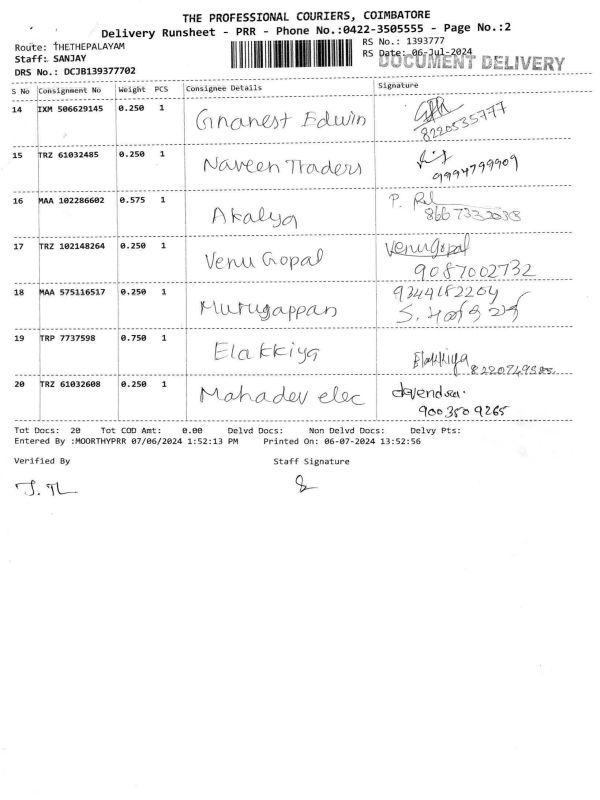 THE PROFESSIONAL COURIERS, COIMBATORE
Delivery Runsheet - PRR - Phone No.:0422-3505555 - Page No.:2
Route: THETHEPALAYAM
RS No.: 1393777
Staff: SANJAY
RS Date: 06-Jul-2024
DOCUMENT DELIVERY
DRS No.: DCJB139377702
S No Consignment No Weight PCS Consignee Details Signature
14 IXM 506629145 0.250 1 Gnanest Edwin
8220535777
15 TRZ 61032485 0.250 1 Naveen Traders
9994799909
16 MAA 102286602 0.575 1 Akalya P.
17 TRZ 102148264 0.250 1 Venu Gopal Venugopal
9087002732
18 MAA 575116517 0.250 1 Murugappan 9344182204
S.
19 TRP 7737598 0.750 1 Elakkiya Elakkiya
20 TRZ 61032608 0.250 1 Mahadev elec
9003509265
Tot Docs: 20 Tot COD Amt: 0.00 Delvd Docs: Non Delvd Docs: Delvy Pts:
Entered By :MOORTHYPRR 07/06/2024 1:52:13 PM Printed On: 06-07-2024 13:52:56
Verified By Staff Signature